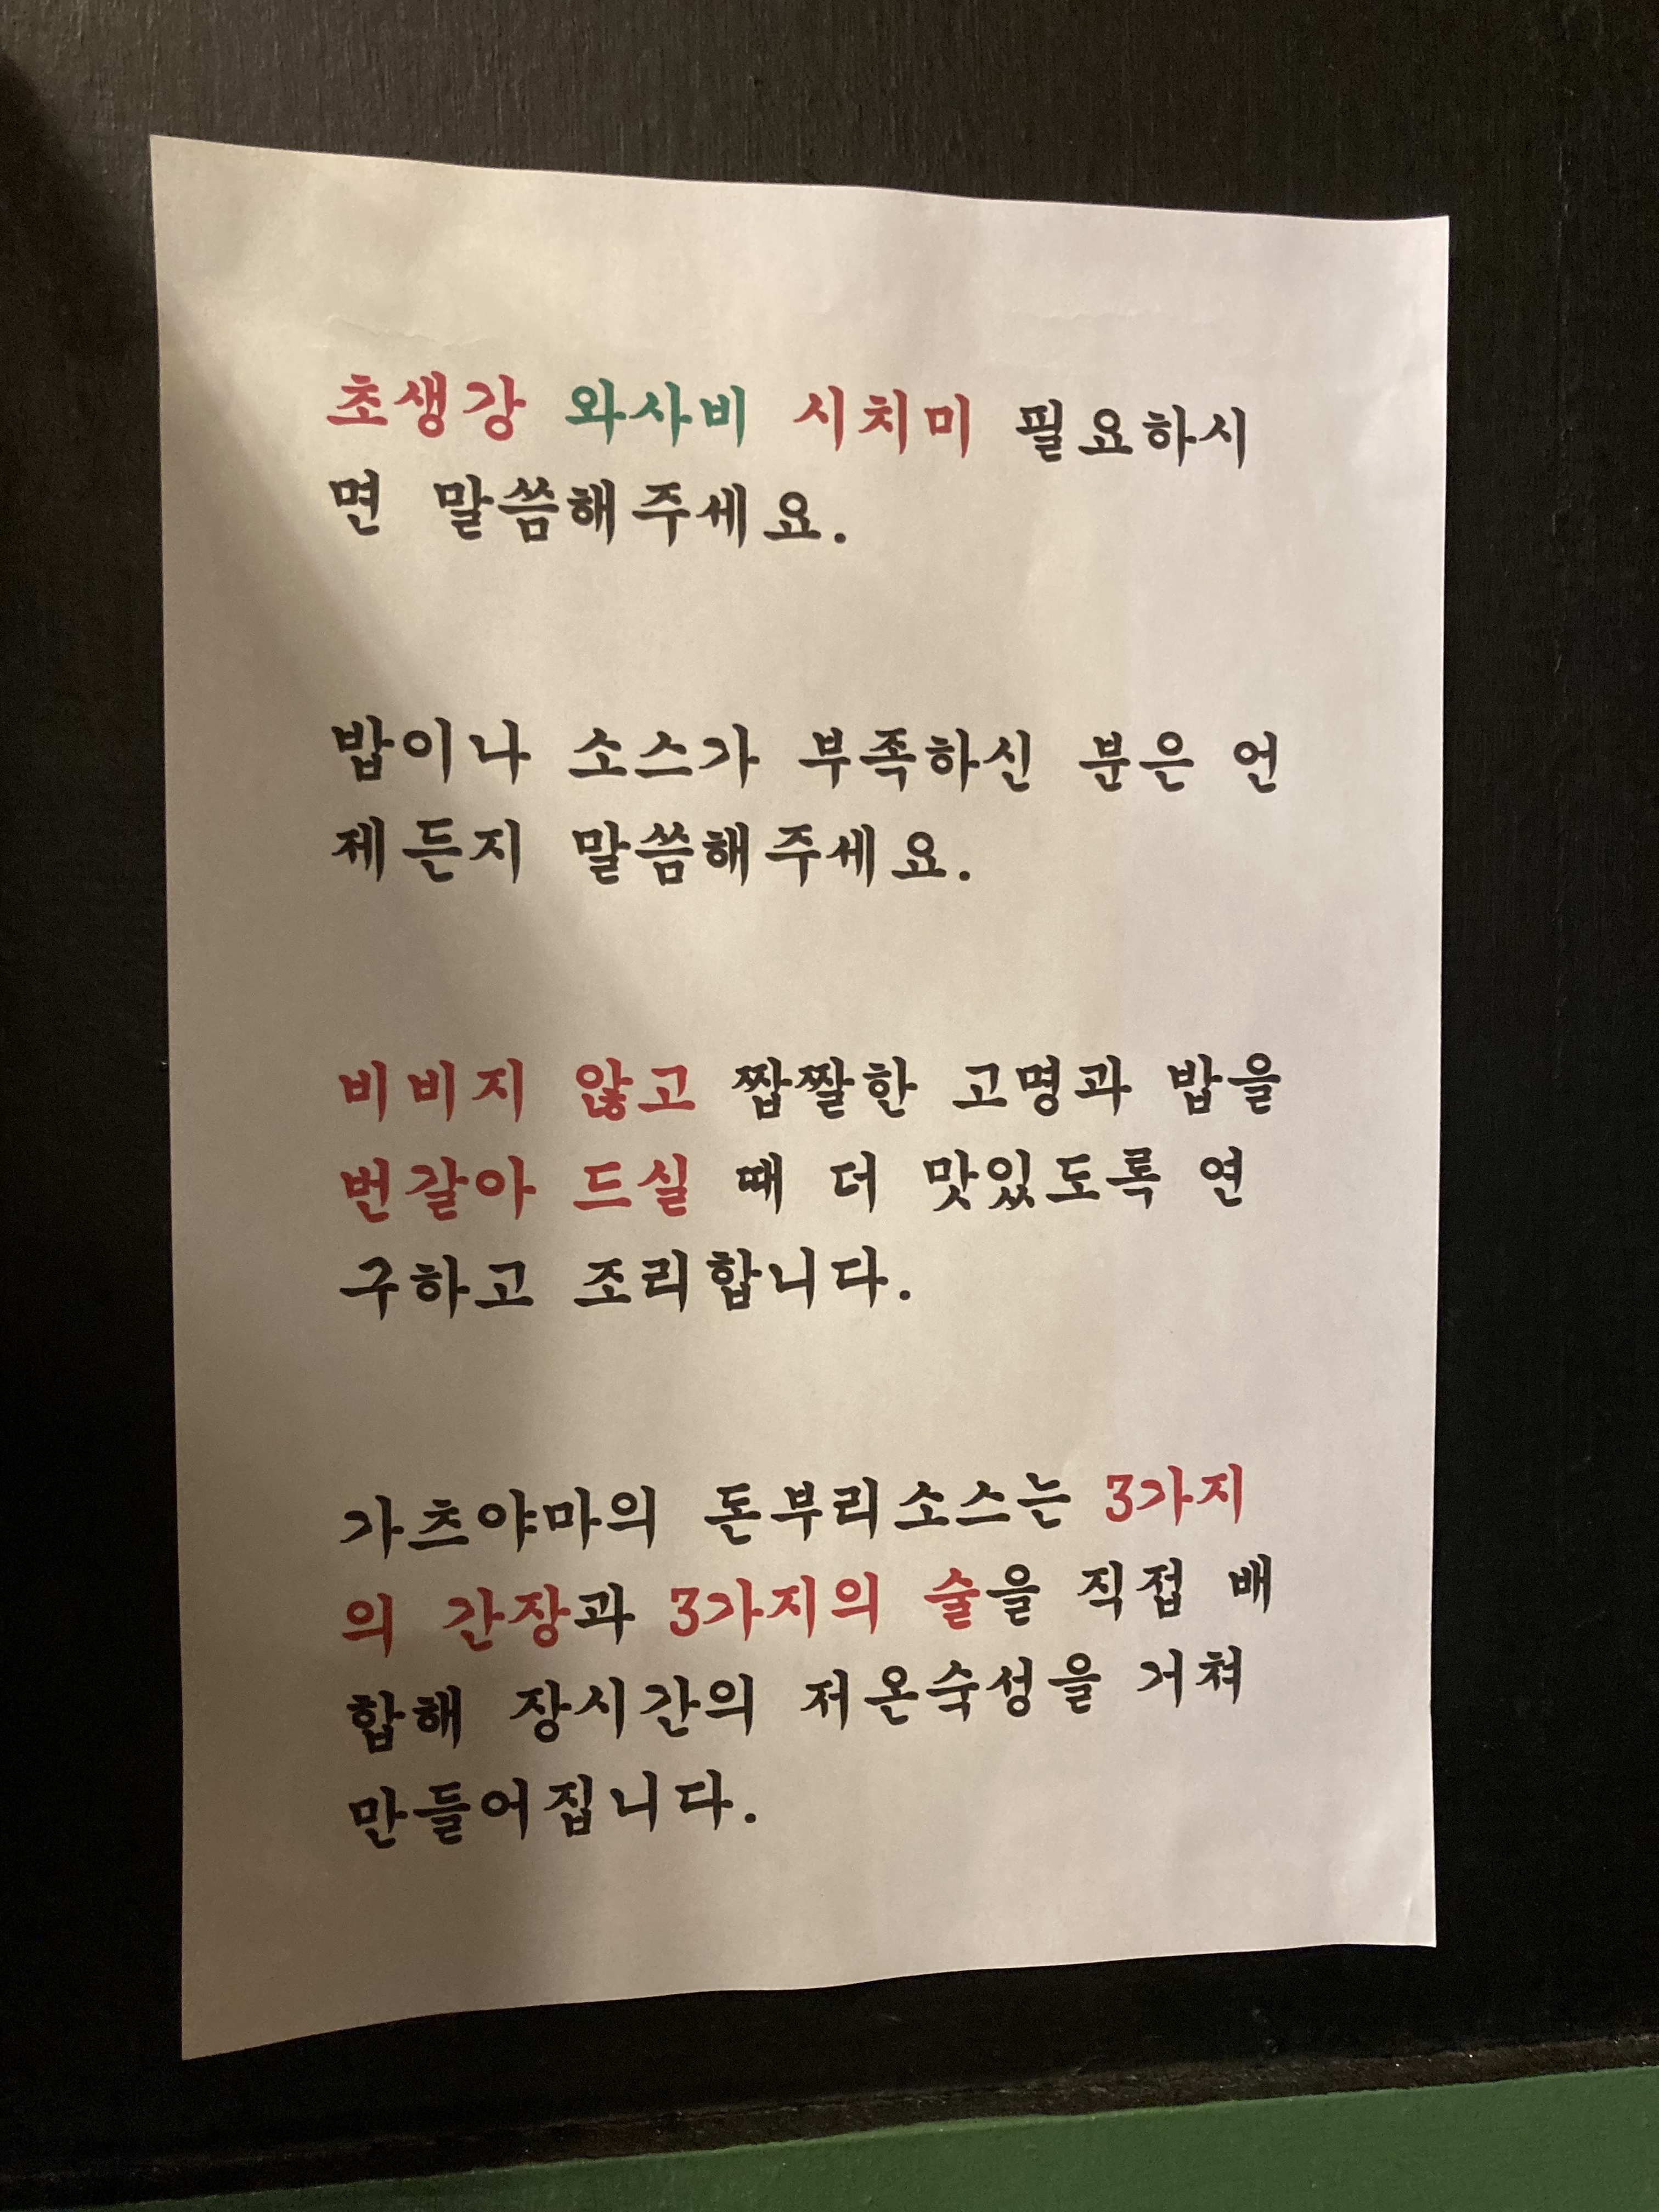 초생강 와사비 시치미 필요하시
면 말씀해주세요.
밥이나 소스가 부족하신 분은 언
제든지 말씀해주세요.
비비지 않고 짭짤한 고명과 밥을
번갈아 드실 때 더 맛있도록 연
구하고 조리합니다.
가츠야마의 돈부리소스는 3가지
의 간장과 3가지의 술을 직접 배
합해 장시간의 저온숙성을 거쳐
만들어집니다.